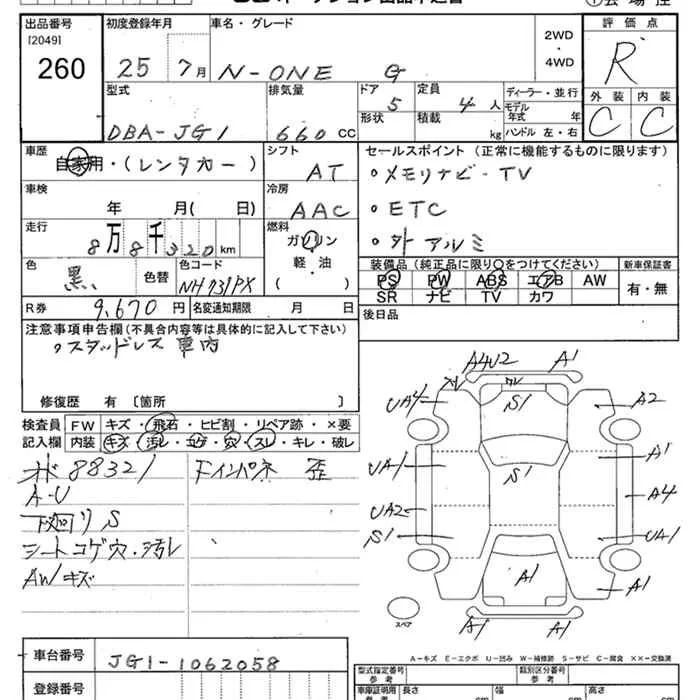 出品番号 初度登録年月 車名・グレード 評価点
[2049]
260 25 7月 N-ONE G 2WD・4WD R
型式 排気量 ドア 5 定員 4人 ディーラー・並行 外装 内装
DBA-JG1 660 CC 形状 積載 kg モデル年式 年 ハンドル 左・右 C C
車歴 自家用・(レンタカー) シフト AT セールスポイント (正常に機能するものに限ります)
・メモリナビ・TV
車検 年 月(日) 冷房 AAC ・ETC
走行 8万8千320km 燃料 ガソリン 軽・油 ( ) ・外アルミ
色 黒 色替 色コード NH731PX 装備品 (純正品に限り○をつけてください) 新車保証書
PS PW ABS エアB AW 有・無
SR ナビ TV カワ
R券 9,670円 名変通知期限 月 日 後日品
注意事項申告欄(不具合内容等は具体的に記入して下さい)
・スタッドレス 車内
修復歴 有 〔箇所 〕
検査員記入欄 FW キズ・飛石・ヒビ割・リペア跡・×要
内装 キズ・汚レ・コゲ・穴・スレ・キレ・破レ
88321 ドインパネ 歪
A-U
下廻リS
シートコゲ穴・汚レ
AWキズ
A4U2 A1
UA4 S1 A2
UA1 S1 A1
UA2 A4
S1 UA1
A1 A1
A1 A1
スペア
A-キズ E-エクボ U-凹み W-補修跡 S-サビ C-腐食 ××-交換済
車台番号 JG1-1062058 型式指定番号 参考 類別区分番号 参考
登録番号 車庫証明用 参考 長さ cm 幅 cm 高さ cm